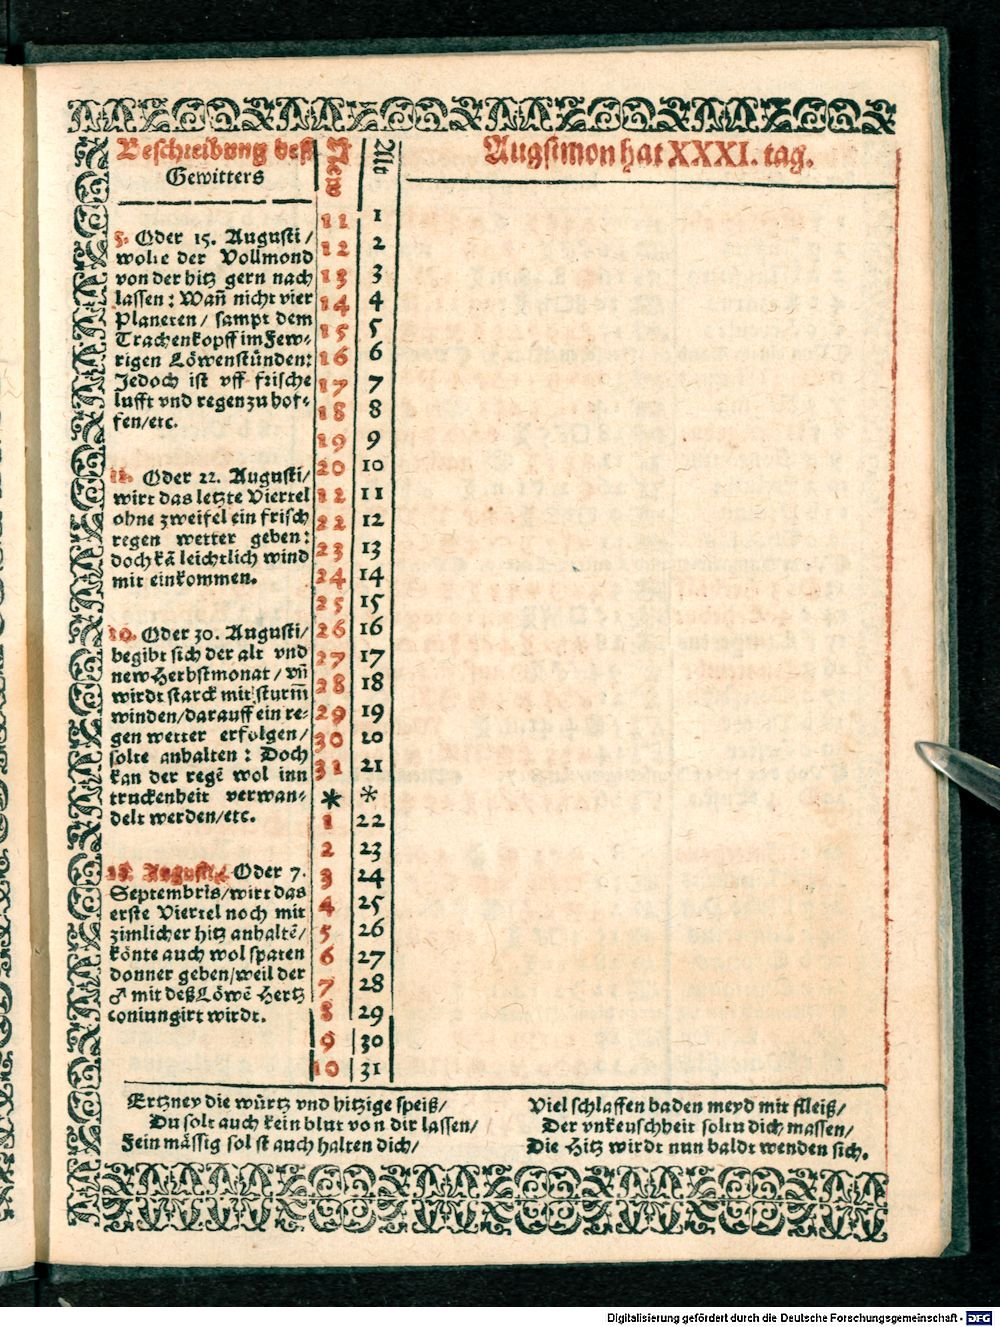 Beschreibung deß
Gewitters
New
Alt
Augstmon hat XXXI. tag.
5. Oder 15. Augusti/
wolte der Vollmond
von der hitz gern nach
lassen: Wañ nicht vier
Planeten/ sampt dem
Trachenkopff im Few-
rigen Löwenstünden:
Jedoch ist vff frische
lufft vnd regen zu hof-
fen/etc.
12. Oder 22. Augusti/
wirt das letzte Viertel
ohne zweifel ein frisch
regen wetter geben:
doch kã leichtlich wind
mit einkommen.
20. Oder 30. Augusti/
begibt sich der alt vnd
new Herbstmonat/ vñ
wirdt starck mit sturm̃
winden/darauff ein re-
gen wetter erfolgen/
solte anhalten: Doch
kan der regẽ wol inn
truckenheit verwan-
delt werden/etc.
28. Augusti/ Oder 7.
Septembris/wirt das
erste Viertel noch mit
zimlicher hitz anhaltẽ/
könte auch wol spaten
donner geben/weil der
♂ mit deß Löwẽ Hertz
coniungirt wirdt.
11 1
12 2
13 3
14 4
15 5
16 6
17 7
18 8
19 9
20 10
12 11
22 12
23 13
24 14
25 15
26 16
27 17
28 18
29 19
30 20
31 21
* *
1 22
2 23
3 24
4 25
5 26
6 27
7 28
8 29
9 30
10 31
Ertzney die würtz vnd hitzige speiß/
Du solt auch kein blut von dir lassen/
Fein mässig solst auch halten dich/
Viel schlaffen baden meyd mit flleiß/
Der vnkeuschheit soltu dich massen/
Die Hitz wirdt nun baldt wenden sich.
Digitalisierung gefördert durch die Deutsche Forschungsgemeinschaft - DFG